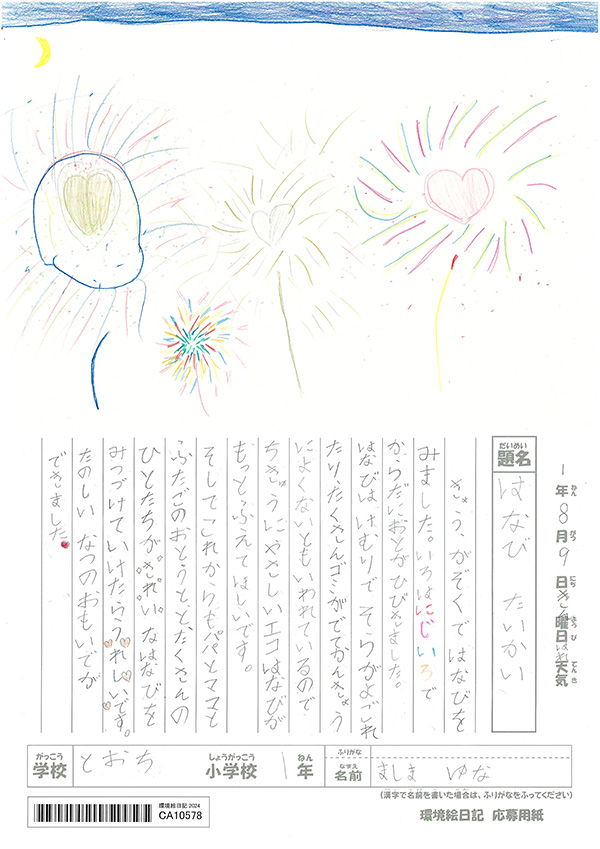 1年8月9日きん曜日はれ天気
ねん がつ にち ようび てんき
だいめい
題名
はなび たいかい
きょう、かぞくではなびを
みました。いろはにじいろで
からだにおとがひびきました。
はなびは けむりで そらがよごれ
たり、たくさんゴミがでてかんきょう
によくないともいわれているので
ちきゅうにやさしいエコはなびが
もっとふえてほしいです。
そしてこれからもパパとママと
ふたごのおとうとと、たくさんの
ひとたちが"きれい"なはなびを
みつづけていけたらうれしいです。
たのしい なつのおもいでが
できました。
がっこう
学校
とおち
しょうがっこう
小学校
1
ねん
年
ふりがな
なまえ
名前
ましま ゆな
(漢字で名前を書いた場合は、ふりがなをふってください)
環境絵日記 2024
CA10578
環境絵日記 応募用紙